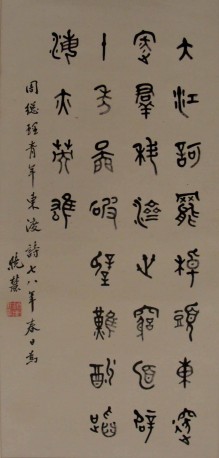 大江訶罷掉頭東邃
密群科濟世窮面壁
十年圖破壁難酬蹈
海亦英雄
周總理青年東渡詩七八年春日寫